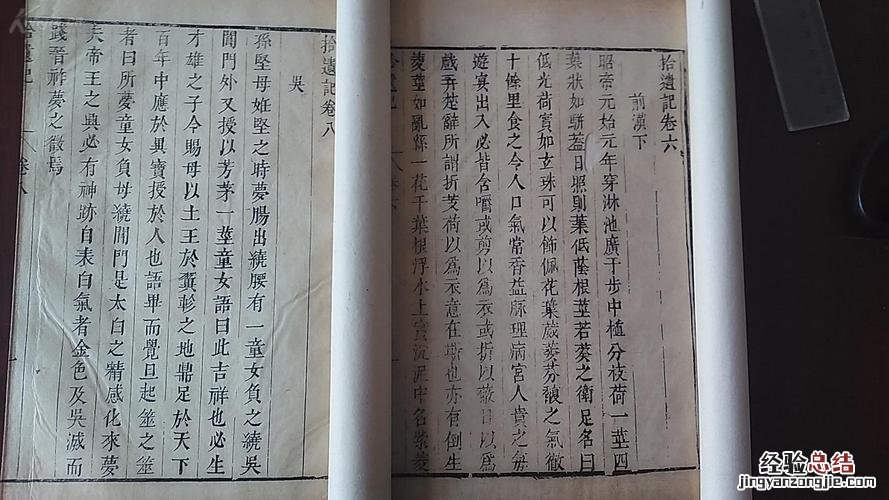 拾遺記卷六
前漢下
昭帝元始元年穿淋池廣千步中植分枝荷一莖四
葉狀如駢葢日照則葉低蔭根莖若葵之衛足名曰
低光荷實如玄珠可以飾佩花葉葳萎芬馥之氣徹
十餘里食之令人口氣常香益脈理病宮人貴之每
遊宴出入必皆含嚼或剪以爲衣或折以蔽日以爲
戲弄楚辭所謂折芰荷以爲衣意在斯也亦有倒生
菱莖如亂絲一花千葉根浮水上實沉泥中名紫菱
卷六
拾遺記卷八
吳
孫堅母姙堅之時夢腸出繞腰有一童女負之繞吳
閶門外又授以芳茅一莖童女語曰此吉祥也必生
才雄之子今賜母以土王於翼軫之地鼎足於天下
百年中應於異寶授於人也語畢而覺旦起筮之筮
者曰所夢童女負母繞閶門是太白之精感化來夢
夫帝王之興必有神跡自表白氣者金色及吳滅而
踐晉祚夢之徵焉
拾遺記 卷八
经验总结
jingyanzongjie.com